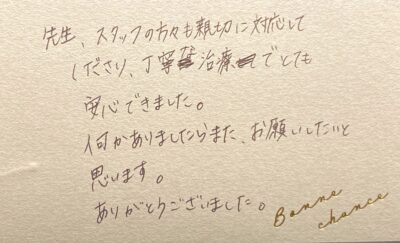 先生、スタッフの方々も親切に対応して
くださり、丁寧な治療でとても
安心できました。
何かありましたらまた、お願いしたいと
思います。
ありがとうございました。
Bonne
chance